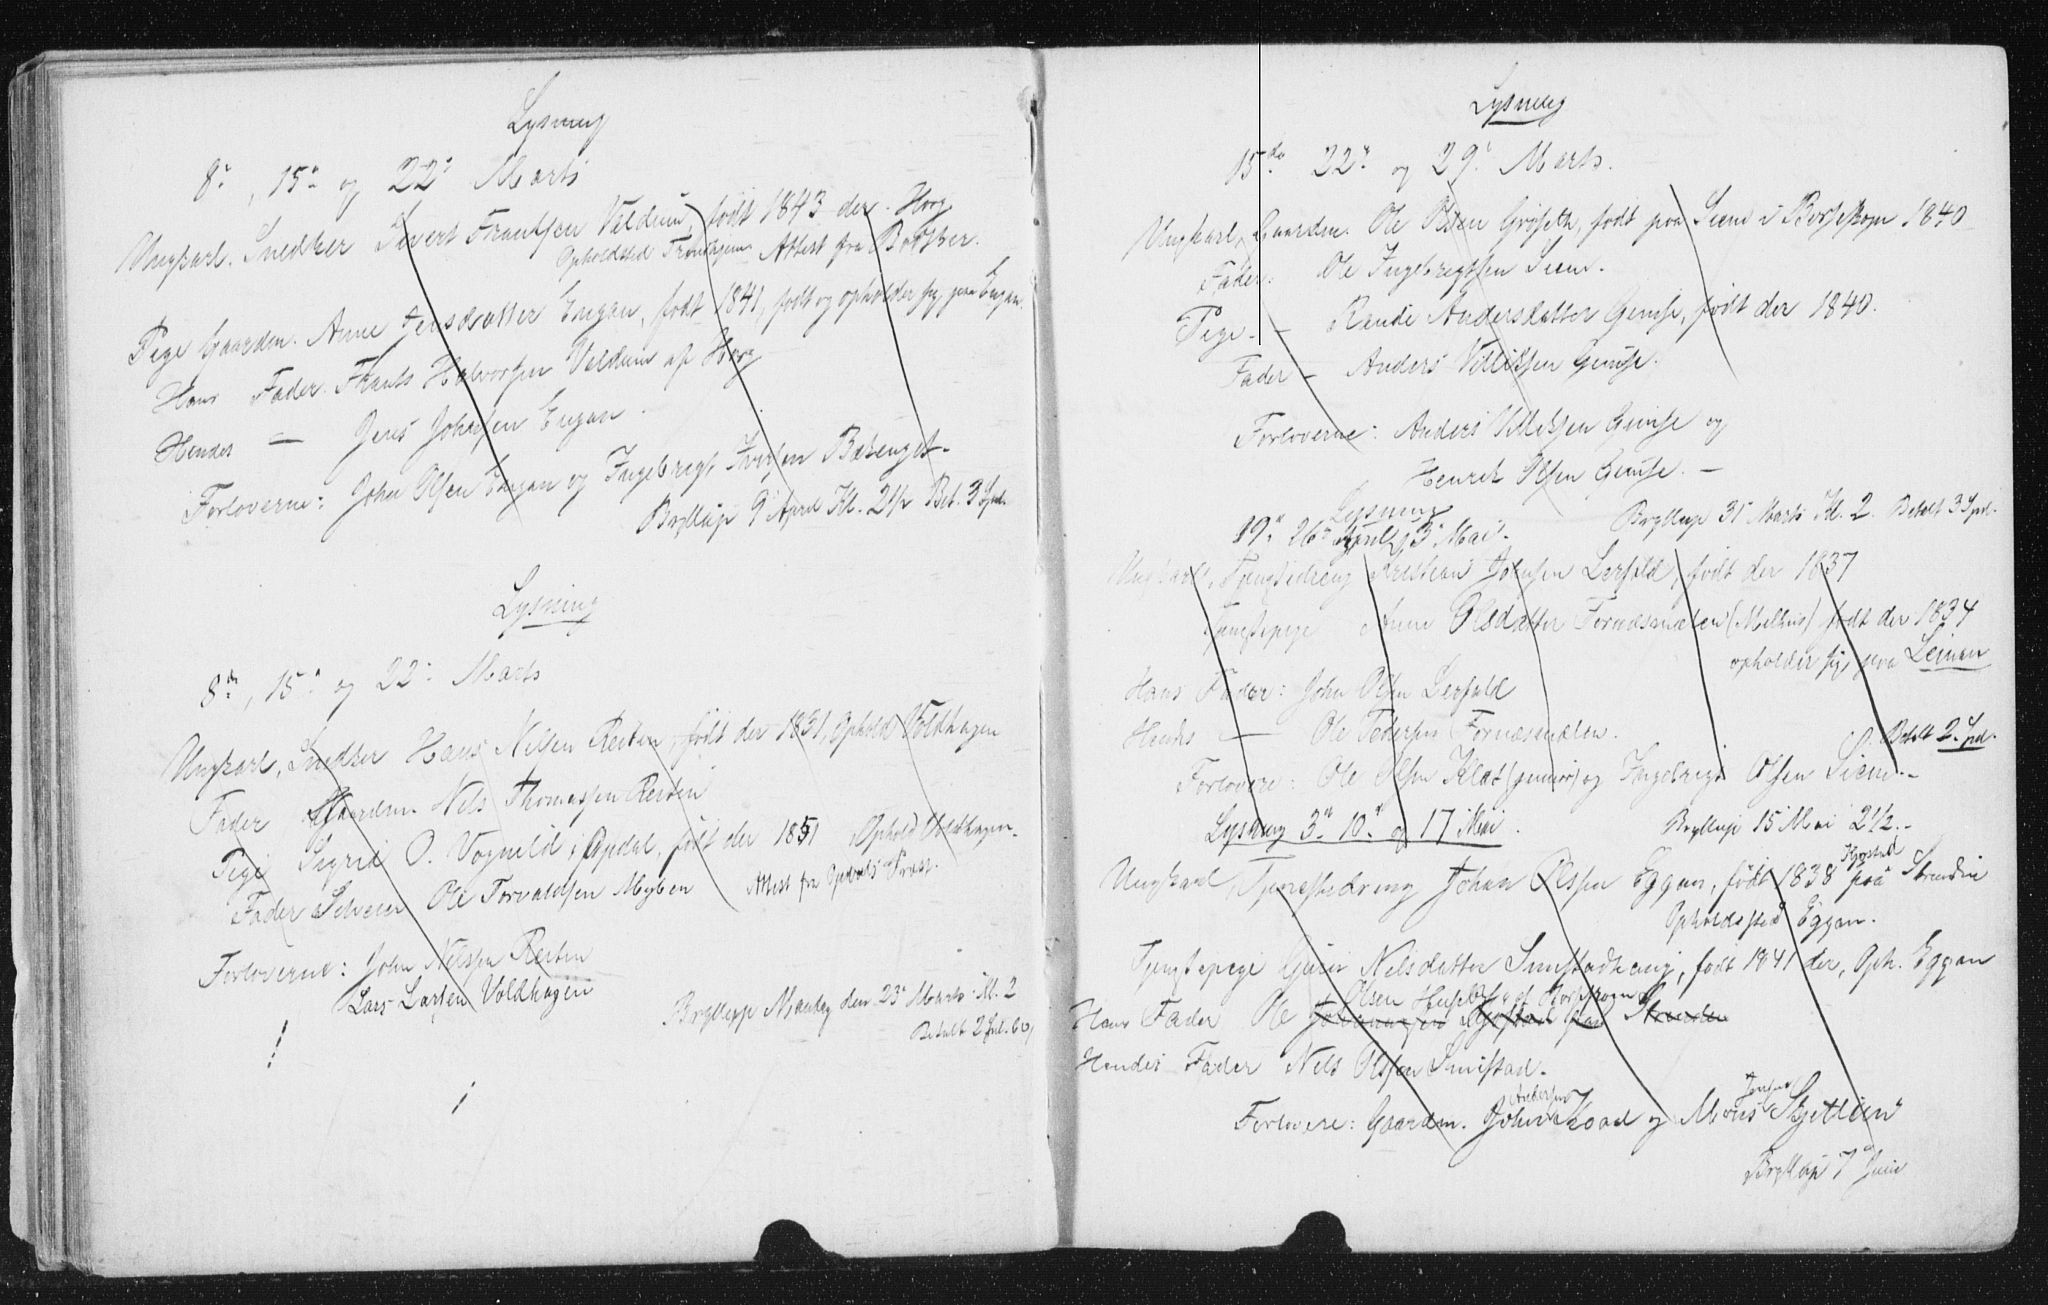 Lysning
8de, 15de og 22de Marts
Ungkarl. Snedker Sivert Frantsen Veldum, født 1843 der. Horg
Opholdssted Trondhjem Attest fra
Pige Gaardm. Anne Jensdatter Engan, født 1841, født og opholder sig paa Engan.
Hans Fader. Frants Halvorsen Veldum af Horg
Hendes — Jens Johnsen Engan.
Forloverne: John Olsen Engan og Ingebrigt Iversen
Bryllup 9de April Kl. 2½ Bet. 3 Spd.
Lysning
8de, 15de og 22de Marts
Ungkarl, Snedker Hans Nilsen Reiten, født der 1831, Ophold Voldhagen
Fader Gaardm. Nils Thomassen Reiten
Pige Sigrid O. Vognild i Opdal, født der 1851 Ophold Voldhagen.
Fader Ole Torvaldsen Attest fra Opdals Præst.
Forloverne: John Nilsen Reiten
Lars Larsen Voldhagen
Bryllup Mandag den 23de Marts Kl. 2
Betalt 2 Spd.
Lysning
15de 22de og 29de Marts.
Ungkarl, Gaardm. Ole Olsen Grøseth, født paa Siem i Børseskogn 1840
Fader: Ole Ingebrigtsen Siem.
Pige — Randi Andersdatter Gimse, født der 1840.
Fader — Anders Villiksen Gimse.
Forloverne: Anders Villiksen Gimse og
Henrik Olsen Gimse. —
Bryllup 31te Marts Kl. 2. Betalt 3 Spd.
Lysning
19de 26de April, 3de Mai.
Ungkarl, Tjenstedreng Kristian Johnsen Lerfald, født der 1837
Tjenstepige Anne Olsdatter Fornæsmælen (Melhus) født der 1834
opholder sig paa Leinan
Hans Fader: John Olsen Lerfald
Hendes — Ole Pedersen Fornæsmælen.
Betalt 2 Spd.
Forlovere: Ole Olsen Klæt (junior) og Ingebrigt Olsen Siem. —
Bryllup 15de Mai 2½. —
Lysning 3de 10de og 17de Mai.
Ungkarl, Tjenestedreng Johan Olsen Eggan, født 1838 paa Stranden
Opholdssted Eggan.
Tjenstepige Guri Nilsdatter Smistadhaug, født 1841 der, Oph. Eggan
Olsen af Børseskogn
Hans Fader Ole Stranden
Hendes Fader Nils Olsen Smistad.
Forlovere: Gaardm. John Andersen og Mons Jensen Skjetlien
Bryllup 7de Juni